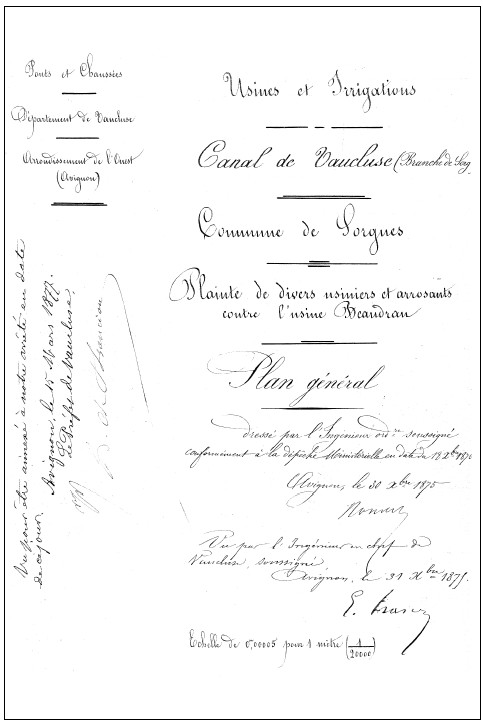 Ponts et Chaussées
Département de Vaucluse
Arrondissement de l'Ouest
(Avignon)
Usines et Irrigations
Canal de Vaucluse (Branche de Sorg
Commune de Sorgues
Plainte de divers usiniers et arrosants
contre l'usine Beaudran
Plan général
dressé par l'Ingénieur ordre soussigné
conformément à la dépêche Ministérielle en date du 18 Xbre 187
Avignon, le 30 Xbre 1875
Vu par l'Ingénieur en chef de
Vaucluse, soussigné
Avignon, le 31 Xbre 1875.
Echelle de 0,00005 pour 1 mètre (1/20000)
Vu pour être annexé à notre arrêté en date
de ce jour.
Avignon, le 15 Mars 1877.
Le Préfet de Vaucluse,